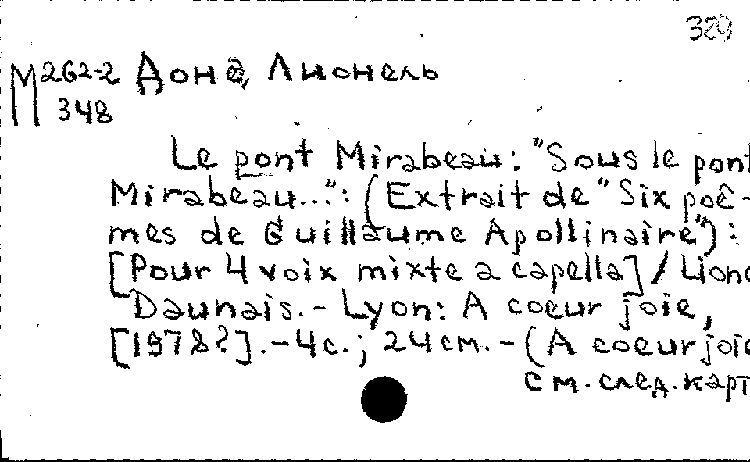 329
М262-2 Донэ, Лионель
348
Le pont Mirabeau: "Sous le pont
Mirabeau...": (Extrait de "Six poê-
mes de Guillaume Apollinaire"):
[Pour 4 voix mixte a capella] / Lione
Daunais. - Lyon: A coeur joie,
[1978?]. - 4 с.; 24 см. - (A coeur joie
см. след. карт